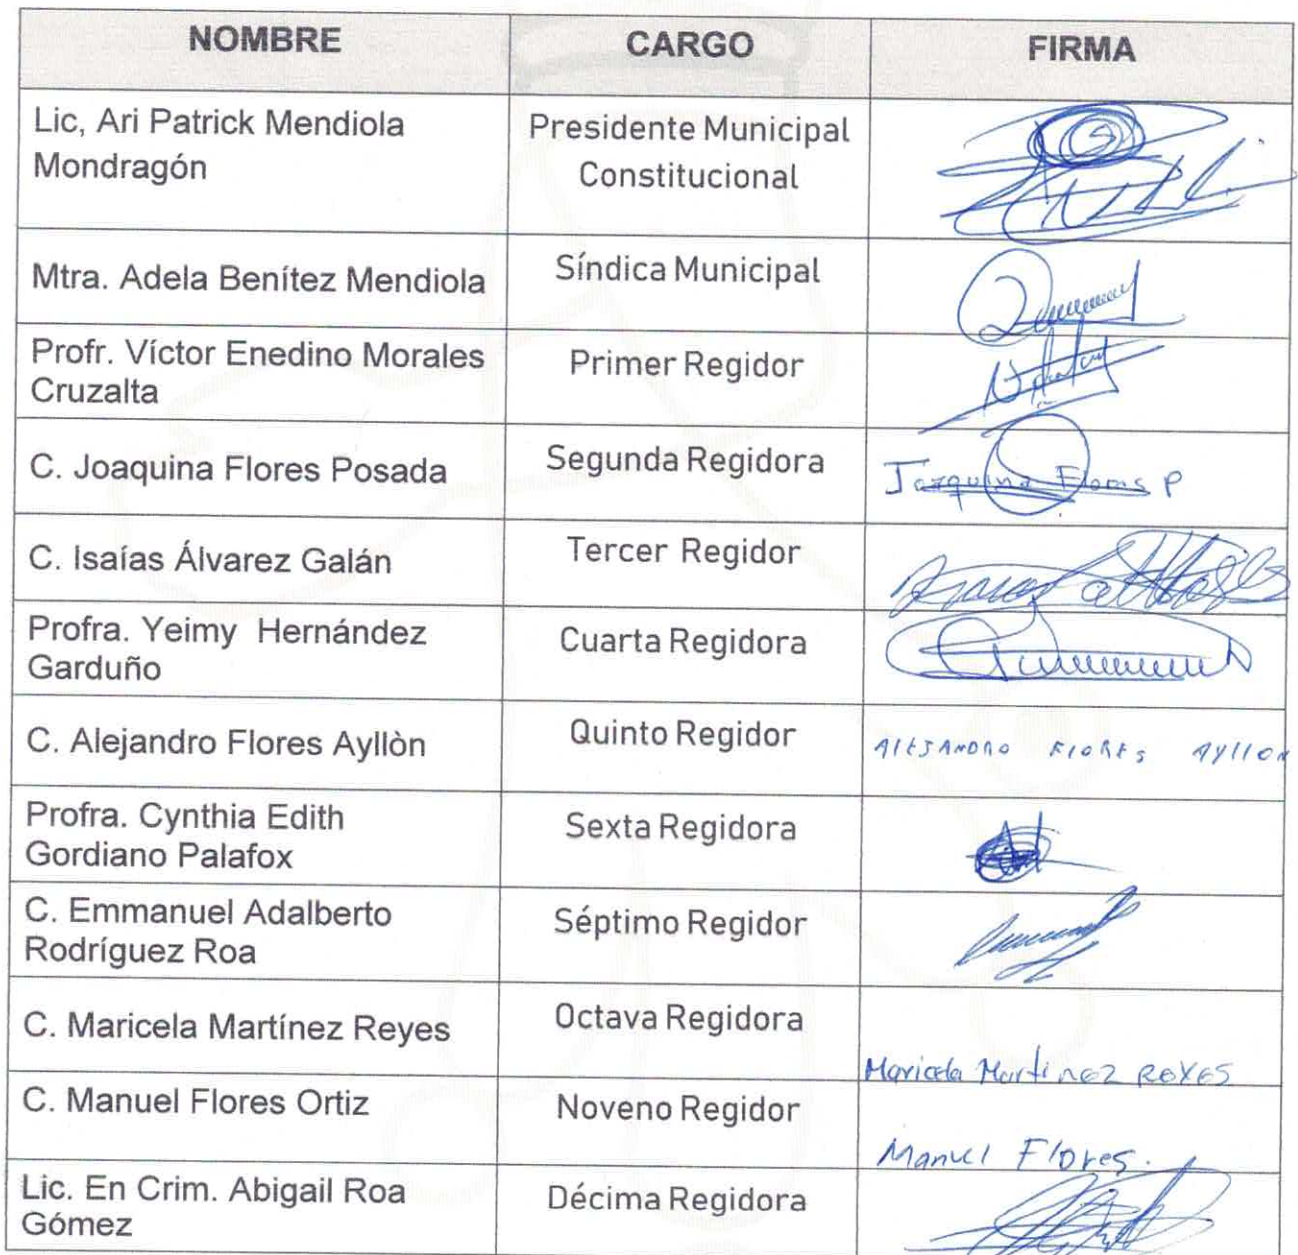 NOMBRE CARGO FIRMA
Lic, Ari Patrick Mendiola Presidente Municipal
Mondragón Constitucional
Mtra. Adela Benítez Mendiola Síndica Municipal
Profr. Víctor Enedino Morales Primer Regidor
Cruzalta
C. Joaquina Flores Posada Segunda Regidora Joaquina Flores P
C. Isaías Álvarez Galán Tercer Regidor
Profra. Yeimy Hernández Cuarta Regidora
Garduño
C. Alejandro Flores Ayllòn Quinto Regidor AlEJANDRO FloREs Ayllon
Profra. Cynthia Edith Sexta Regidora
Gordiano Palafox
C. Emmanuel Adalberto Séptimo Regidor
Rodríguez Roa
C. Maricela Martínez Reyes Octava Regidora Maricela Martinez REYES
C. Manuel Flores Ortiz Noveno Regidor Manuel Flores.
Lic. En Crim. Abigail Roa Décima Regidora
Gómez